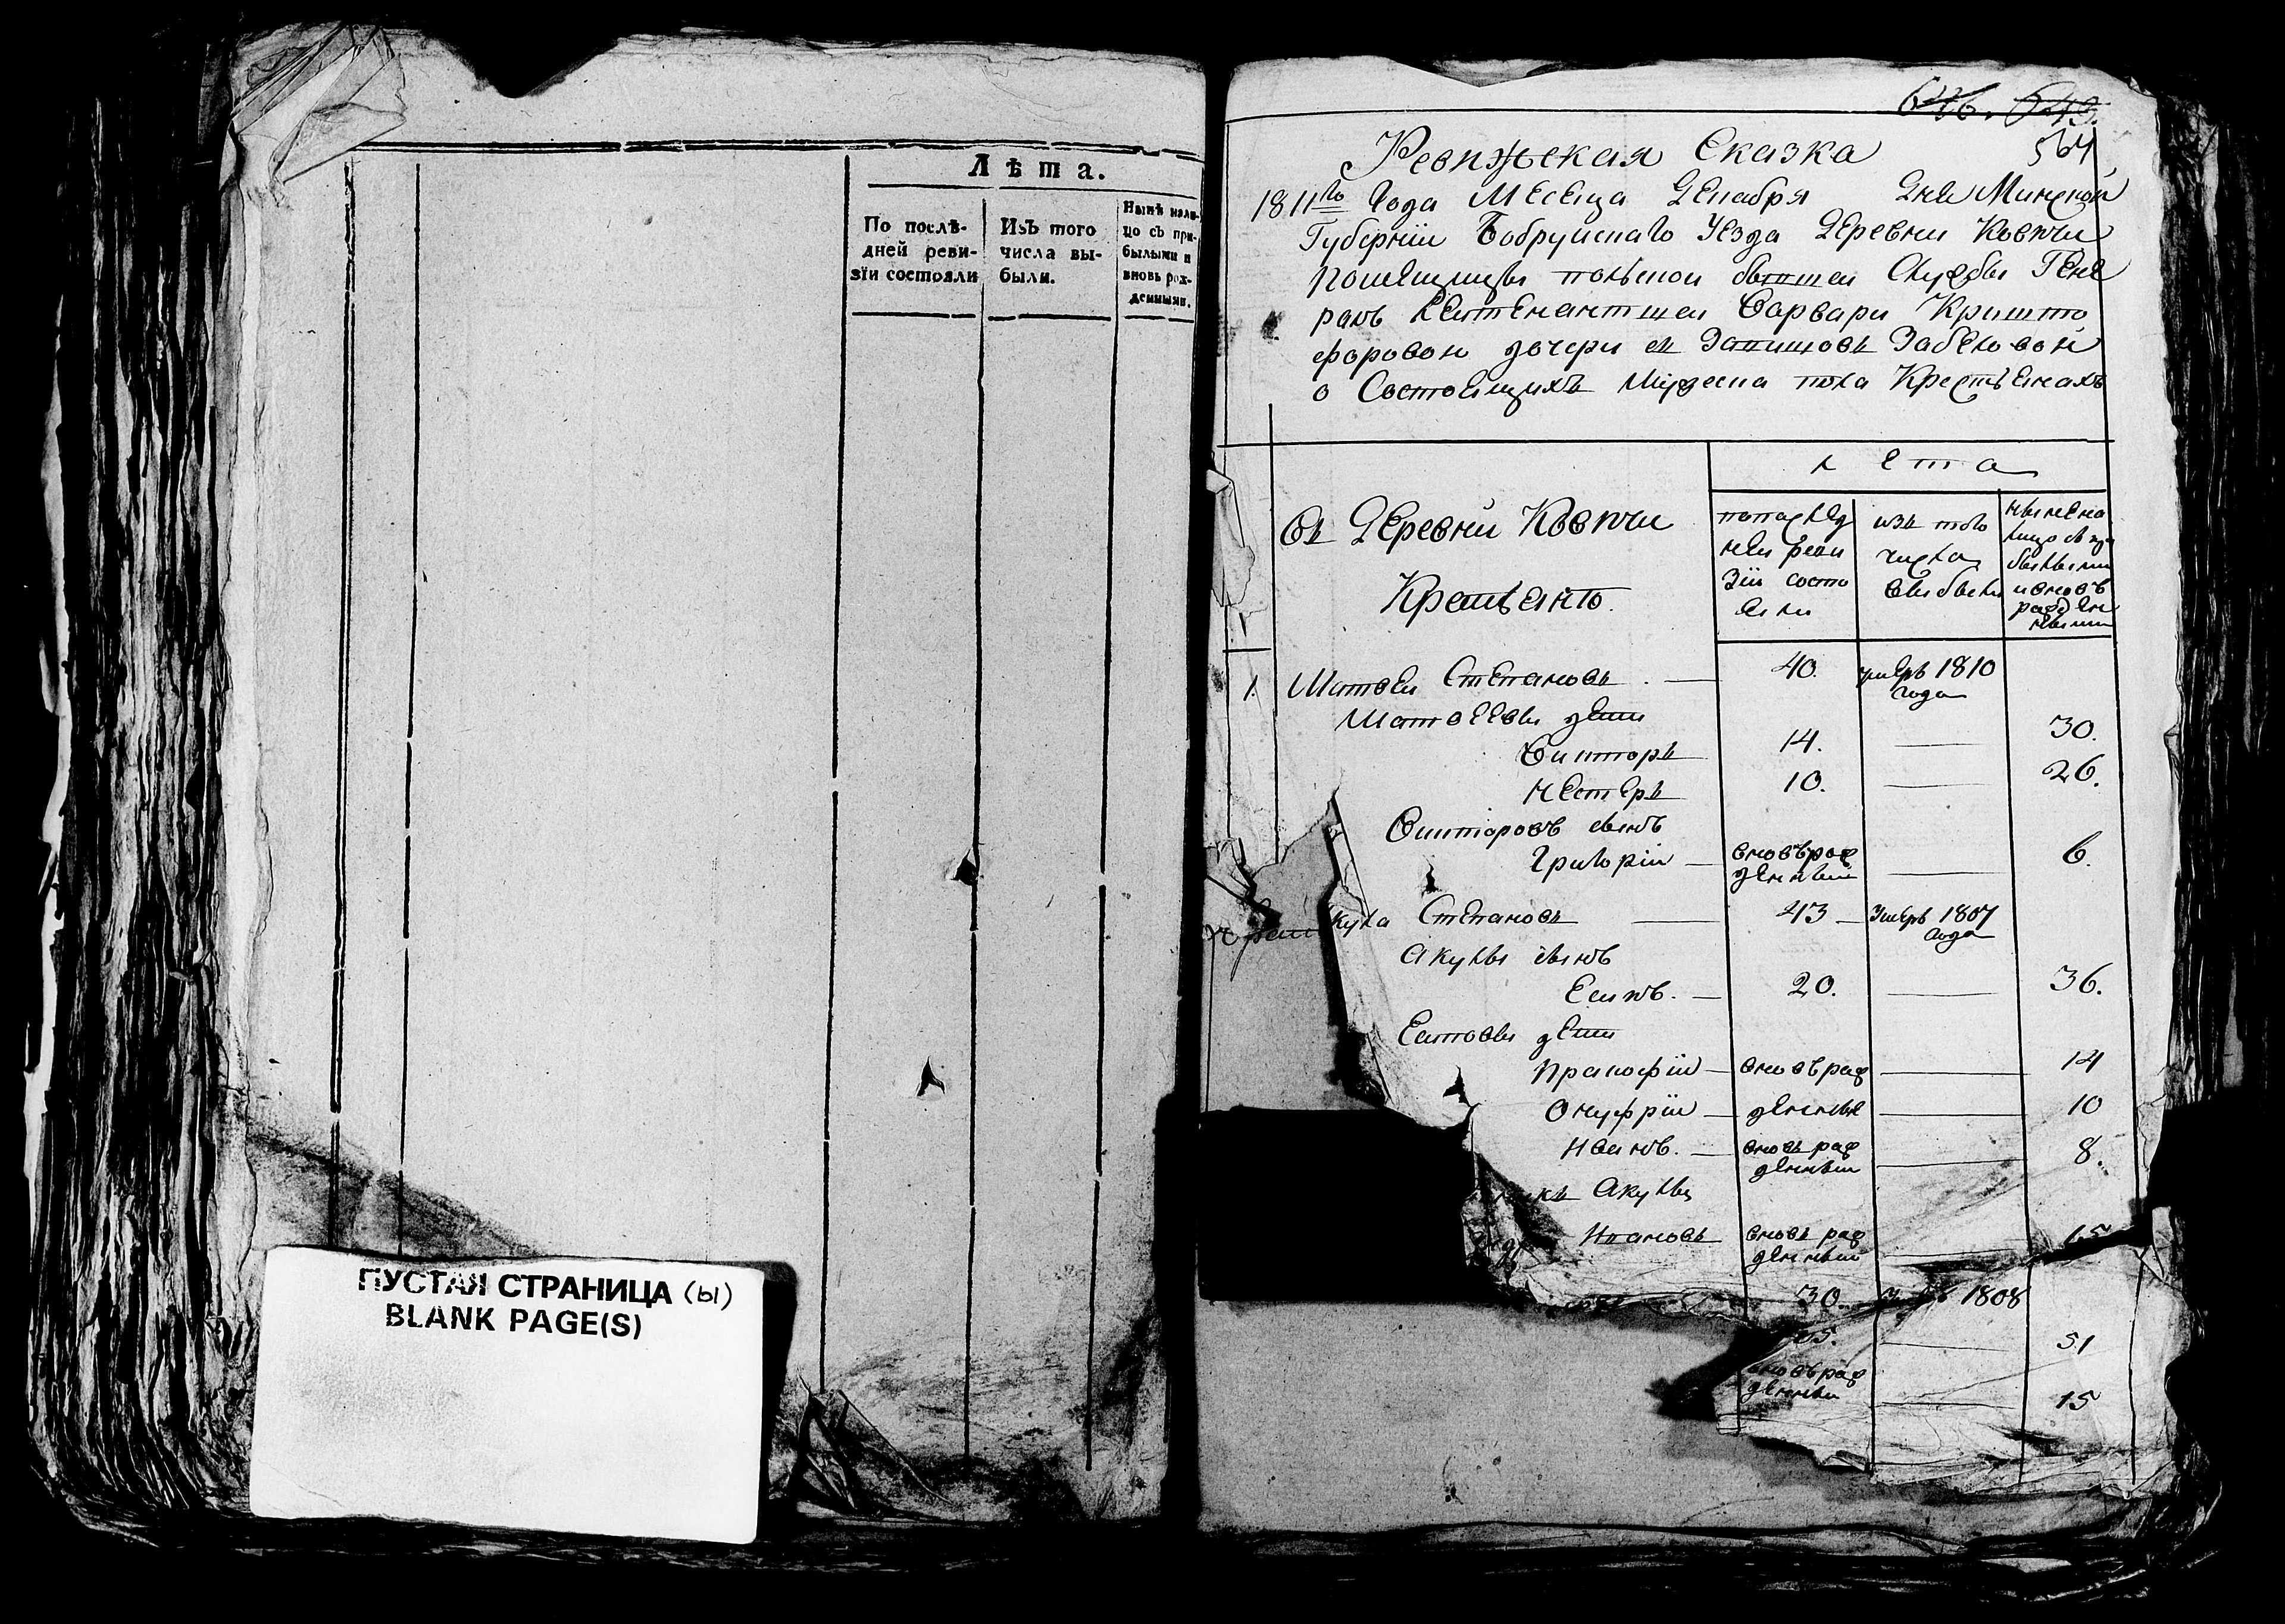 Лѣта.
По послѣ-
дней реви-
зїи состояли
Изъ того
числа вы-
были.
Нынѣ нали-
цо съ при-
былыми и
вновь рож-
денными.
ПУСТАЯ СТРАНИЦА (ы)
BLANK PAGE(S)
646. 649.
564
Ревизская Сказка
1811го Года Месеца Декабря Дня Минской
Губернїи Бобруйскаго Уезда Деревни Ковчи
помещицы польской бытшей службы Гене
ралъ Лейтенантшей Варвары Кришто
форовой дочери
о Состоящихъ мужеска пола Крестьянахъ
лета
Въ Деревни Ковчи
Крестьянъ.
попослед
ней реви
зїи состо
яли
изъ того
числа
выбыли
ныне на
лицо съ при
былыми
и вновь
рожден
ными
1. Матвей Степановъ 40. умеръ 1810
года
Матвеевы дети
Викторъ 14. 30.
Нестеръ 10. 26.
Викторовъ сынъ
Григорїй вновь рож
денный 6.
кула Степановъ 43 умеръ 1807
года
Акулы сынъ
Есипъ. 20. 36.
Есиповы дети
Пракофїй вновь рож 14
Онуфрїй денные 10
Иванъ. вновь рож
денный 8.
къ Акулы
Ивановъ вновь рож
денный 15
30. 1808
35. 51
вновь рож
денный 15